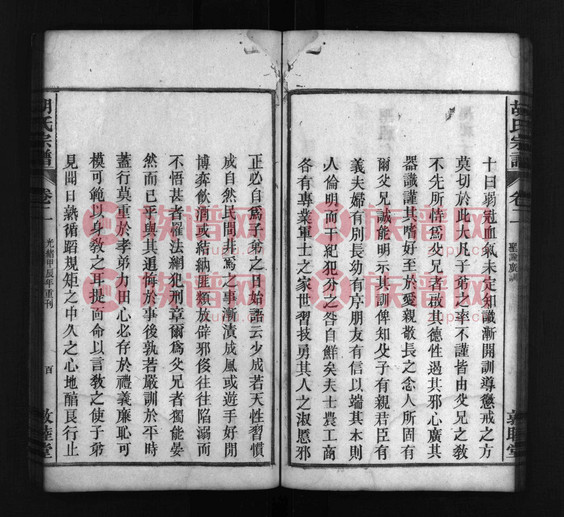 胡氏宗譜
卷二
聖諭廣訓
敦睦堂
十曰弱冠血氣未定知識漸開訓導懲戒之方
莫切於此大凡子弟之率不謹皆由父兄之教
不先所恃為父兄者啟其德性遏其邪心廣其
器識謹其嗜好至於愛親敬長之念人所固有
爾父兄誠能明示其訓俾知父子有親君臣有
義夫婦有別長幼有序朋友有信以端其本則
人倫明而干紀犯分之咎自鮮矣夫士農工商
各有專業軍士之家世習技勇其人之淑慝邪
正必自為子弟之日始語云少成若天性習慣
成自然民間非為之事漸漬成風或遊手好閒
博弈飲酒或結納匪類放辟邪侈往往陷溺而
不悟甚者罹法網犯刑章爾為父兄者獨能晏
然而已乎與其追悔於事後孰若嚴訓於平時
蓋行莫重於孝弟力田心必存於禮義廉恥可
模可範以身教之耳提而命以言教之使子弟
見聞日熟循蹈規矩之中久之心地醇良行止
胡氏宗譜
卷二
光緒甲辰年重刊
百
敦睦堂
族谱网